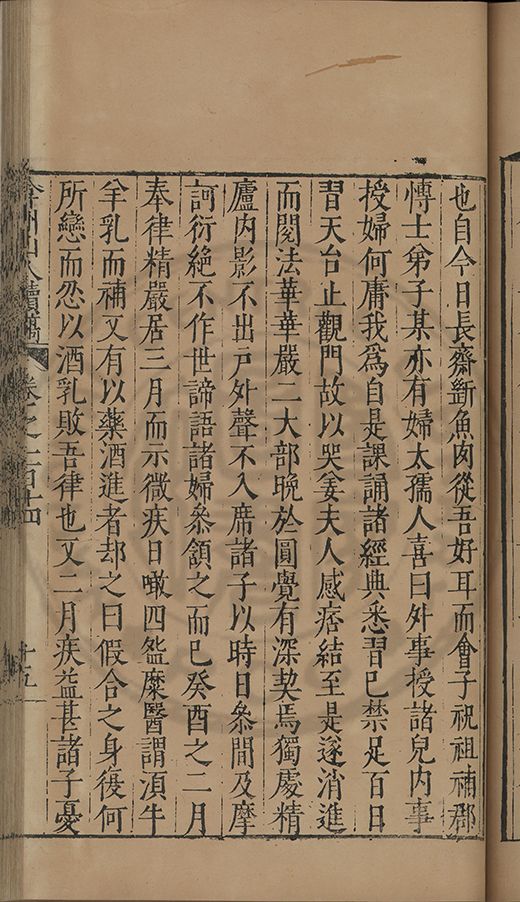 也自今日長齋斷魚肉從吾好耳而會子祝祖補郡
博士弟子某亦有婦太孺人喜曰外事授諸兒內事
授婦何庸我爲自是課誦諸經典悉習已禁足百日
習天台止觀門故以哭姜夫人感痞結至是遂消進
而閱法華華嚴二大部晚於圓覺有深契焉獨處精
廬內影不出戶外聲不入席諸子以時日叅間及摩
訶衍絕不作世諦語諸婦叅頷之而已癸酉之二月
奉律精嚴居三月而示微疾日噉四盌糜醫謂湏牛
羊乳而補又有以藥酒進者却之曰假合之身復何
所戀而忍以酒乳敗吾律也又二月疾益甚諸子憂
弇州山人續稿 卷之一百十四 十五